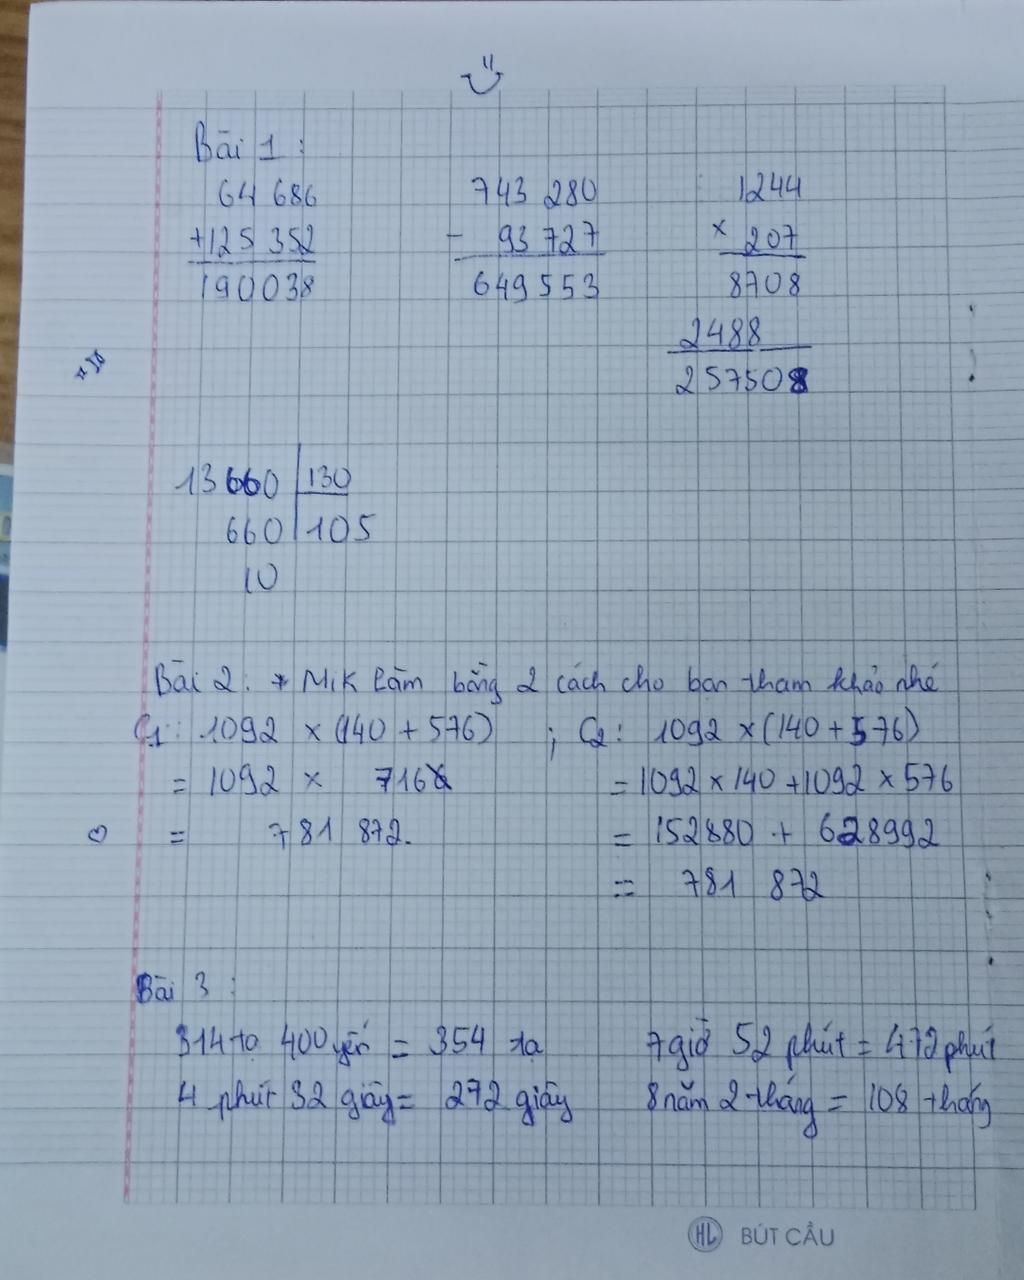 Bài 1 :
64 686
+125 352
190038
743 280
- 93 727
649553
1244
× 207
8708
2488
257508
13660 | 130
660 | 105
10
Bài 2 : * Mik làm bằng 2 cách cho bạn tham khảo nhé
C1 : 1092 × (140 + 576) ; C2 : 1092 × (140 + 576)
= 1092 × 716 = 1092 × 140 + 1092 × 576
= 781 872. = 152880 + 628992
= 781 872
Bài 3 :
314 tạ 400 yến = 354 tạ 7 giờ 52 phút = 472 phút
4 phút 32 giây = 272 giây 8 năm 2 tháng = 108 tháng
HL BÚT CẦU